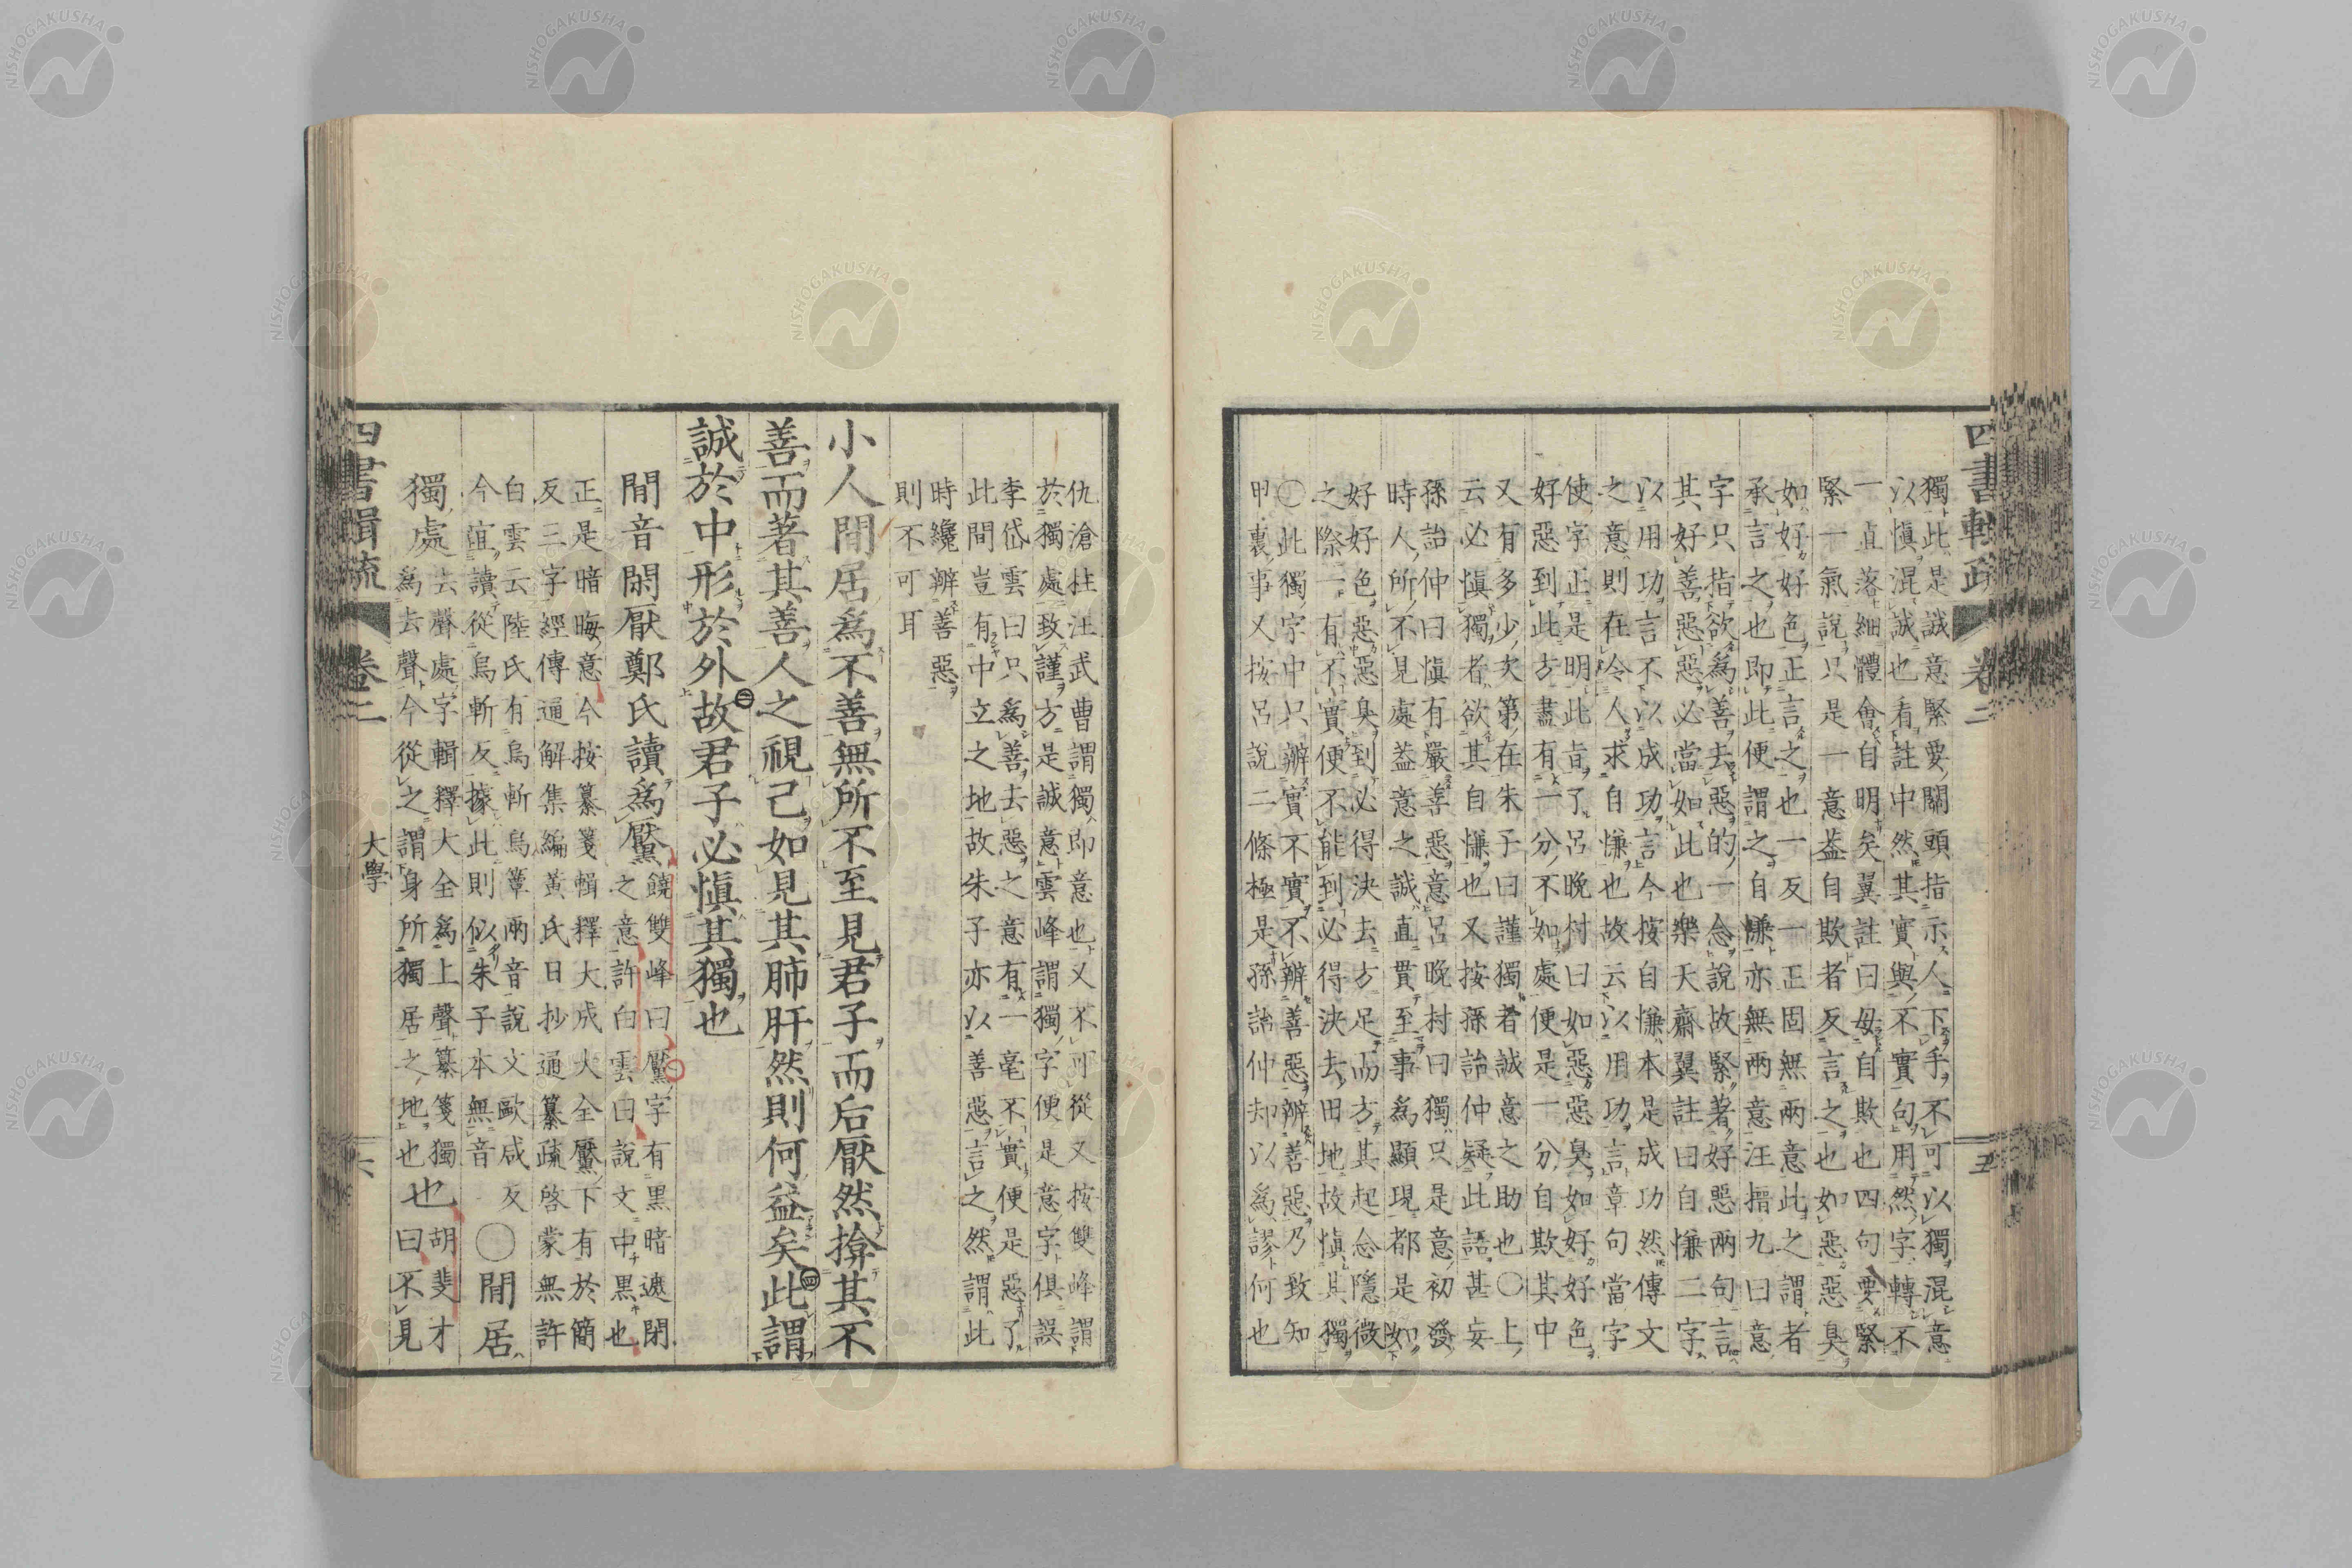 四書輯疏
卷二
五
獨此是誠意緊要關頭指示人下手不可以獨混意
以愼混誠也看註中然其實與不實句用然字轉不
一直落細體會自明矣翼註曰毋自欺也四句要緊
緊一氣說只是一意葢自欺者反言之也如惡惡臭
如好好色正言之也一反一正固無兩意此之謂者
承言之也即此便謂之自慊亦無兩意汪搢九曰意
字只指欲爲善去惡的一念說故緊著好惡兩句言
其好善惡惡必當如此也樂天齋翼註曰自慊二字
以用功言不以成功言今按自慊本是成功然傳文
之意則在令人求自慊也故云以用功言章句當字
使字正是明此旨了呂晚村曰如惡惡臭如好好色
好惡到此方盡有一分不如處便是一分自欺其中
又有多少次第在朱子曰謹獨者誠意之助也〇上
云必愼獨者欲其自慊也又按孫詒仲疑此語甚妄
孫詒仲曰愼有嚴善惡意呂晚村曰獨只是意初發
時人所不見處葢意之誠直貫至事爲顯現都是如
好好色惡惡臭到必得決去方足而方其起念隱微
之際一有不實便不能到必得決去田地故愼其獨
〇此獨字中只辨實不實不辨善惡辨善惡乃致知
甲裏事又按呂說二條極是孫詒仲却以爲謬何也
仇滄柱汪武曹謂獨即意也又不可從又按雙峰謂
於獨處致謹方是誠意雲峰謂獨字便是意字俱誤
李岱雲曰只爲善去惡之意有一毫不實便是惡了
此間豈有中立之地故朱子亦以善惡言之然謂此
時纔辨善惡
則不可耳
小人閒居爲不善無所不至見君子而后厭然揜其不
善而著其善人之視己如見其肺肝然則何益矣此謂
誠於中形於外故君子必愼其獨也
閒音閑厭鄭氏讀爲黶
饒雙峰曰黶字有黑暗遮閉
之意許白雲曰說文中黑也
正是暗晦意今按纂箋輯釋大成大全黶下有於簡
反三字經傳通解集編黃氏日抄通纂疏啓蒙無許
白雲云陸氏有烏斬烏簟兩音說文歐咸反
今誼讀從烏斬反據此則似朱子本無音
〇閒居
獨處
去聲處字輯釋大全爲上聲纂箋獨
爲去聲今從之謂身所獨居之地也
也
胡斐才
曰不見
四書輯疏
卷二
大學
六
NISHOGAKUSHA